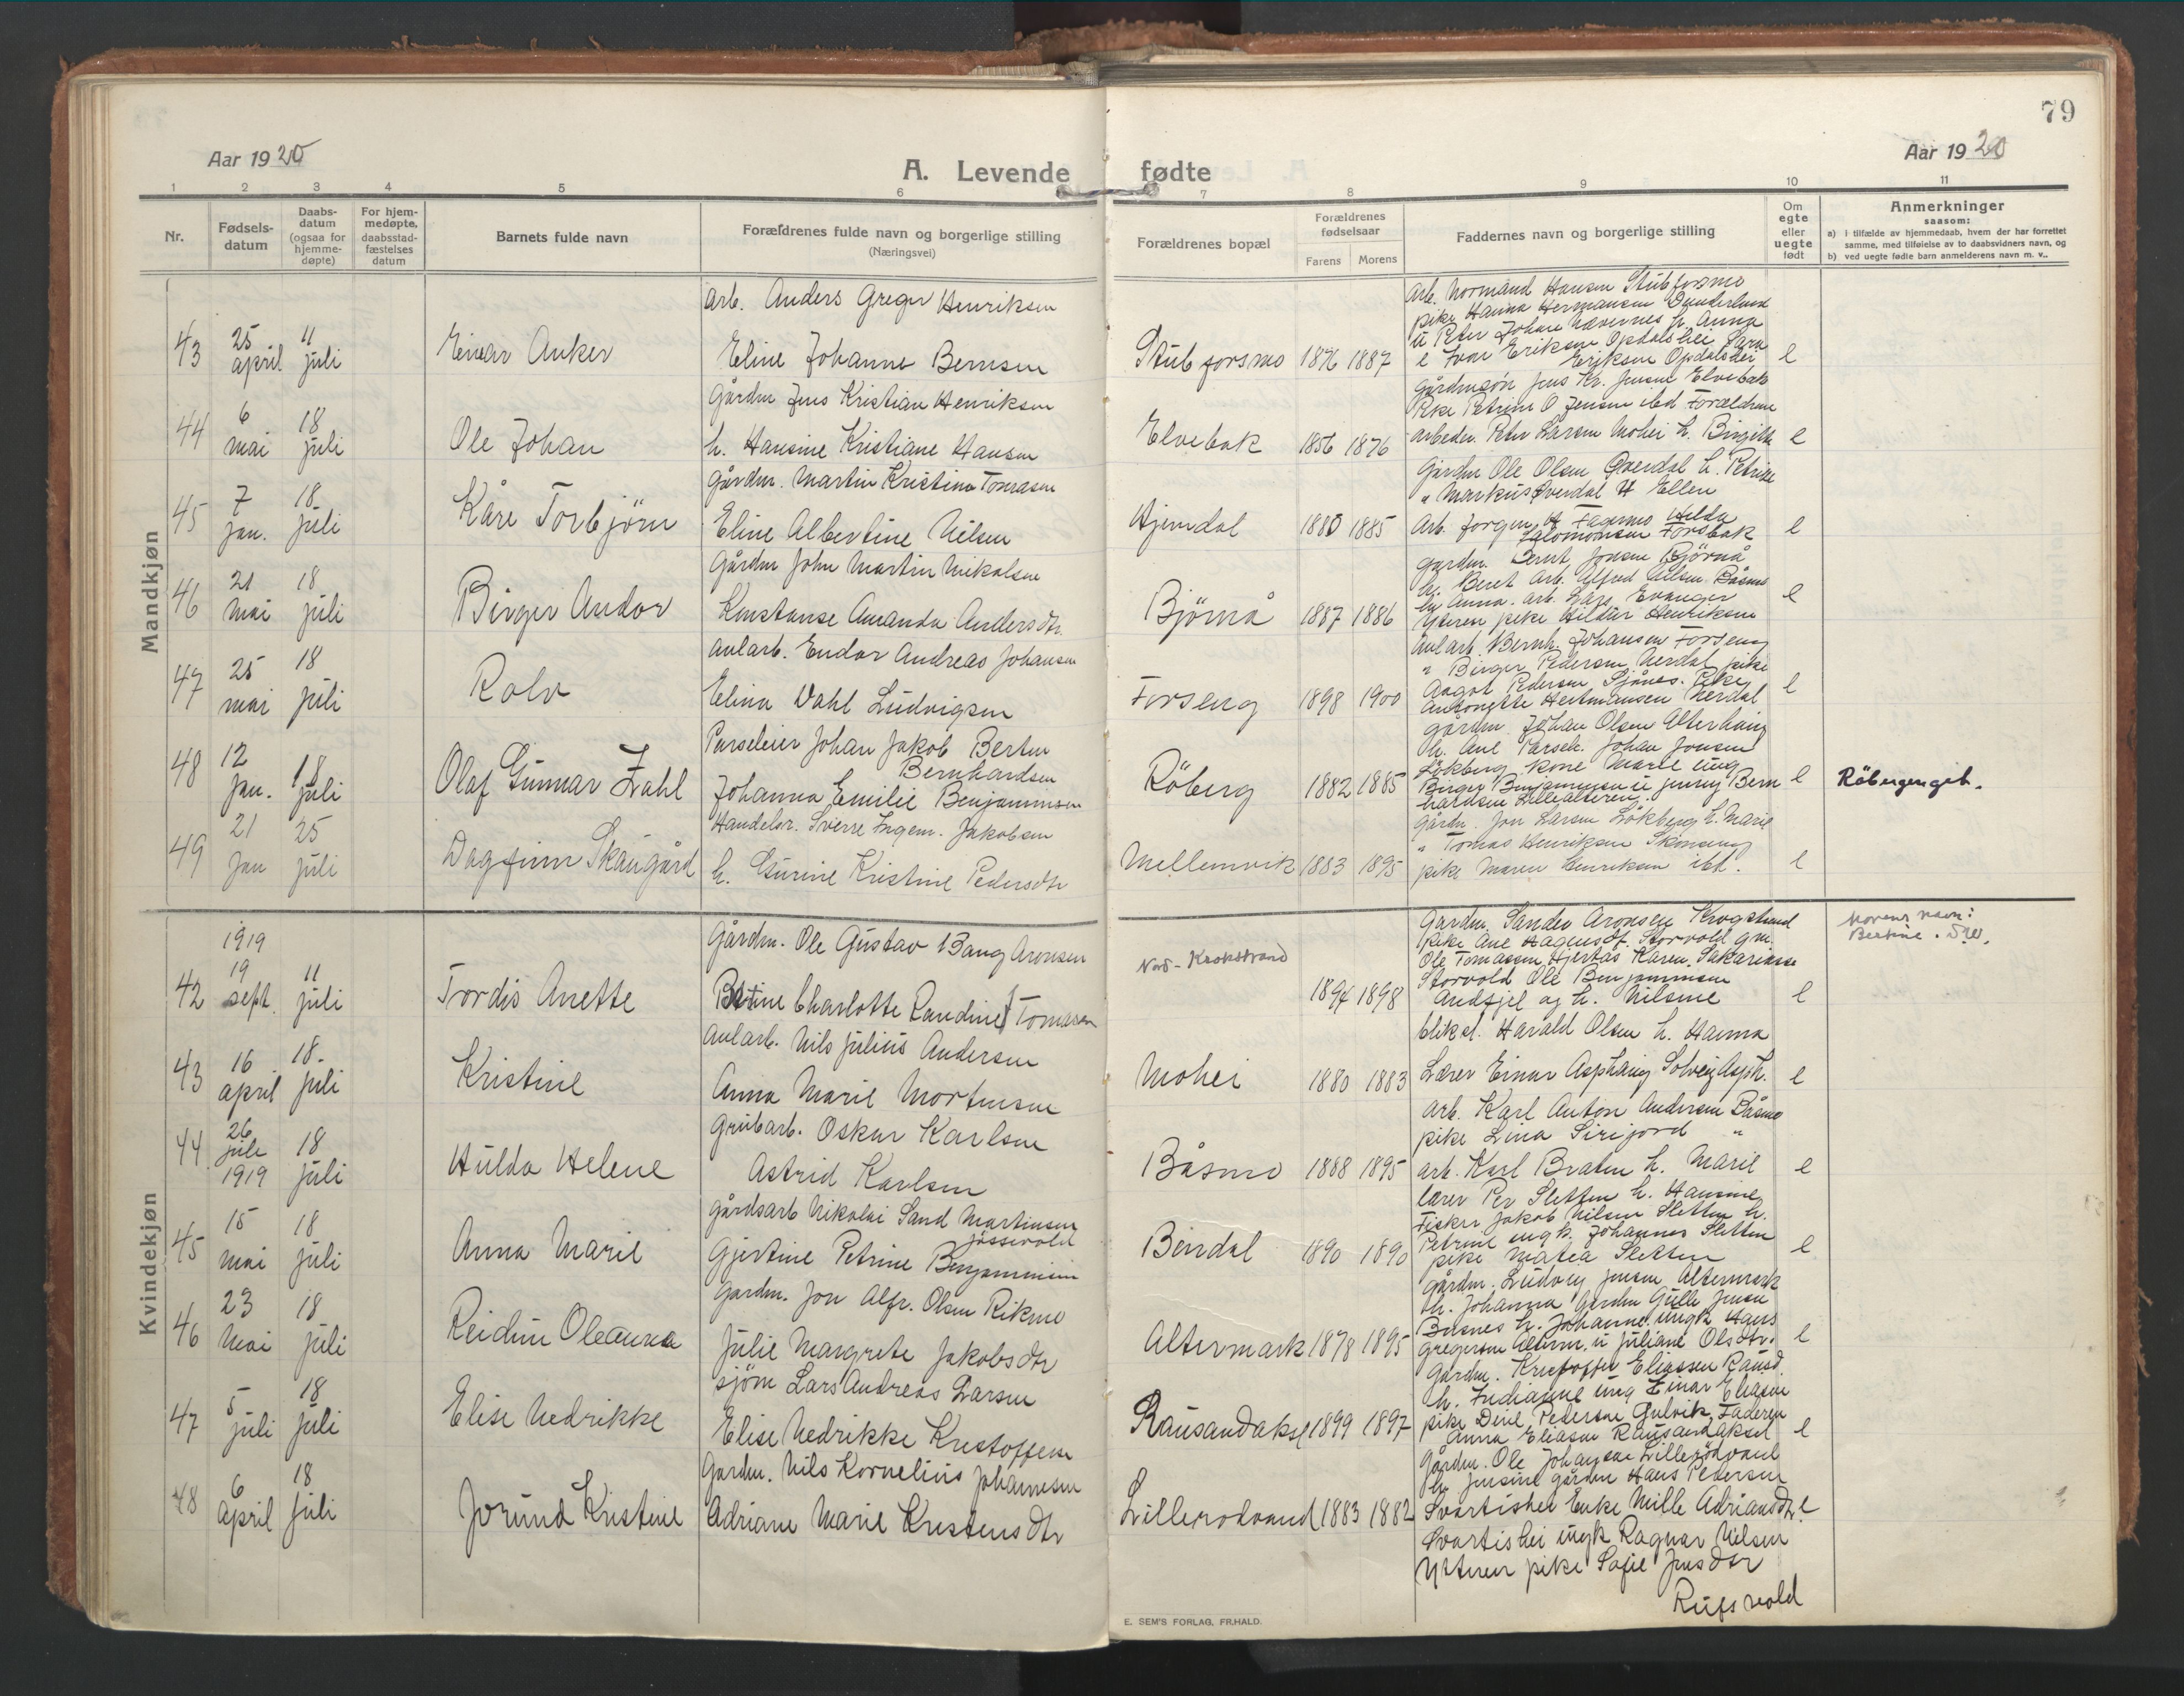 79
Aar 1920
A. Levende fødte
Aar 1920
1 2 3 4 5 6 7 8 9 10 11
Nr.
Fødsels-
datum
Daabs-
datum
(ogsaa for
hjemme-
døpte)
For hjem-
medøpte,
daabsstad-
fæstelses
datum
Barnets fulde navn
Forældrenes fulde navn og borgerlige stilling
(Næringsvei)
Forældrenes bopæl
Forældrenes
fødselsaar
Farens Morens
Faddernes navn og borgerlige stilling
Om
egte
eller
uegte
født
Anmerkninger
saasom:
a) i tilfælde av hjemmedaab, hvem der har forrettet
samme, med tilføielse av to daabsvidners navn, og
b) ved uegte fødte barn anmelderens navn m. v..
Mandkjøn
43
25
april
11
juli
Einar Anker
Arb. Anders Greger Henriksen
Eline Johanne Bernsen
Stubforsmo 1876 1887
Arb. Normand Hansen Stubforsmo
pike Hanna Hermansen Dunderland
u Peter Johan Nævernes h. Anna
e Ivar Eriksen Opdalshei Sara
Eriksen Opdalshei
e
44
6
mai
18
juli
Ole Johan
Gårdm Jens Kristian Henriksen
h. Hansine Kristiane Hansen
Elvebak 1856 1876
Gårdmsøn Jens Kr. Jensen Elvebak
Pike Petrine O Jensen ibd Forældrene
arbeder. Peter Larsen Mohei h. Birgitte
e
45
7
jan.
18
juli
Kåre Torbjörn
Gårdm. Martin Kristian Tomasen
Eline Albertine Nilsen
Hjemdal 1880 1885
Gårdm Ole Olsen Øverdal h. Petrine
" Markus Øverdal H Ellen
Arb. Jorgen H Fagermo Helda
Salomonsen Forsbak
e
46
21
mai
18
juli
Birger Andor
Gårdm John Martin Nikolsen
Konstanse Amanda Andersdtr.
Bjömå 1887 1886
gardm. Bernt Jonsen Björnå
h. Beret Arb. Alfred Nilsen Båsmo
h. Anna. arb. Lars Evanger
Ytteren pike Hildur Henriksen
e
47
25
mai
18
juli
Rolv
Anlarb. Endor Andreas Johansen
Elina Dahl Ludvigsen
Forseng 1898 1900
Anlarb. Bernh. Johansen Forseng
" Birger Pedersen Nerdal pike
Aagot Pedersen Sjånes. Pike
Antonette Hertmansen Nerdal
e
48
12
Jan.
18
juli
Olaf Gunnar Zahl
Parseleier Johan Jakob Berten
Bernhardsen
Johanna Emilie Benjaminsen
Röberg 1882 1885
gårdm. Johan Olsen Alterhaug
h. Ane Parsel. Johan Jonsen
Lökberg kone Marie ung
Birger Benjaminsen u jenny Bern
hardsen Lillealteren.
e
Röbergenget.
49
21
Jan
25
juli
Dagfinn Skaugård
Handelsr. Sverre Ingem. Jakobsen
h. Gurine Kristine Pedersdtr
Mellemvik 1883 1895
Gårdm. Jon Larsen Lökberg h. Marie
" Tomas Henriksen Skonseng
pike Maren Henriksen ibd.
e
Kvindekjøn
42
1919
19
sept.
11
juli
Tordis Anette
Gårdm. Ole Gustav Bang Aronsen
Bertine Charlotte Randine Tomasen
Nord-Krokstrand
1894 1898
Gardm. Sander Aronsen Krogstrand
Pike Ane Hagensdt. Storvold gm.
Ole Tomassen Hjertås Karen Sakariasse
Storvold Ole Benjaminsen
Andfjel og h. Nilsine
e
Morens navn:
Bertine.
43
16
april
18.
juli
Kristine
Anlarb. Nils Julius Andersen
Anna Marie Mortensen
Mohei 1880 1883
bliksl. Harald Olsen h. Hanna
Lærer Einar Asphaug Solveig Asph.
e
44
26
jule
1919
18
juli
Hulda Helene
Grubarb. Oskar Karlsen
Astrid Karlsen
Båsmo 1888 1895
Arb. Karl Anton Andersen Båsmo
pike Lina Sirijord "
arb. Karl Braten h. Marie
e
45
15
mai
18
juli
Anna Marie
Gårdsarb Nikolai Sand Martinsen
Jössevold
Gjertine Petrine Benjaminsen
Bendal 1890 1890
lærer Per Sletten h. Hansine
Fisker Jakob Nilsen Sletten h.
Petrine ungk. Johannes Sletten
pike Matea Sletten
e
46
23
Mai
18
juli
Reidun Oleanna
Gardm. Jon Alfr. Olsen Rikmo
Julie Margrete Jakobsdtr
Altermark 1878 1895
gårdm. Ludvig Jensen Altermark
h. Johanna Gardm Gulle Jensen
Busnes h. Johanne ungk Hans
Gregersen Altern. u Juliane Olsdtr.
e
47
5
juli
18
juli
Elise Hedrikke
Sjöm Lars Andreas Larsen
Elise Hedrikke Kristoffersen
Rausandaksl 1899 1897
Gardm. Kristoffer Eliassen Rausd.
h. Indianne ung Einar Eliasen
pike Dine Pedersen Gulvik, Faderen
Anna Eliasen Rausandaksel
e
48
6
April
18
juli
Jorund Kristine
Gardm. Nils Kornelius Johannesen
Adriane Marie Kristensdtr
Lillerodvand 1883 1882
Gårdm. Ole Johansen Lillerødvand
h. Jensine gårdm Hans Pedersen
Svartishei Enke Mille Adriansdtr
Svartishei ungk Ragnar Nilsen
Ytteren pike Sofie Jensdtr
Rufsvold
e
E. SEM'S FORLAG, FR.HALD.